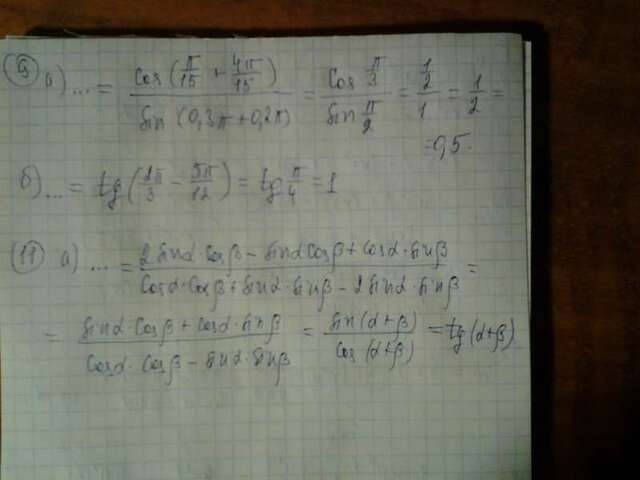 9 в) ... = cos (π/15 + 4π/15) / sin (0,3π + 0,2π) = cos π/3 / sin π/2 = 1/2 / 1 = 1/2 =
= 0,5.
б) ... = tg (2π/3 − 5π/12) = tg π/4 = 1
11 а) ... = 2 sinα·cosβ − sinα cosβ + cosα·sinβ / cosα·cosβ + sinα·sinβ − 2 sinα·sinβ =
= sinα·cosβ + cosα·sinβ / cosα·cosβ − sinα·sinβ = sin(α+β) / cos(α+β) = tg(α+β)